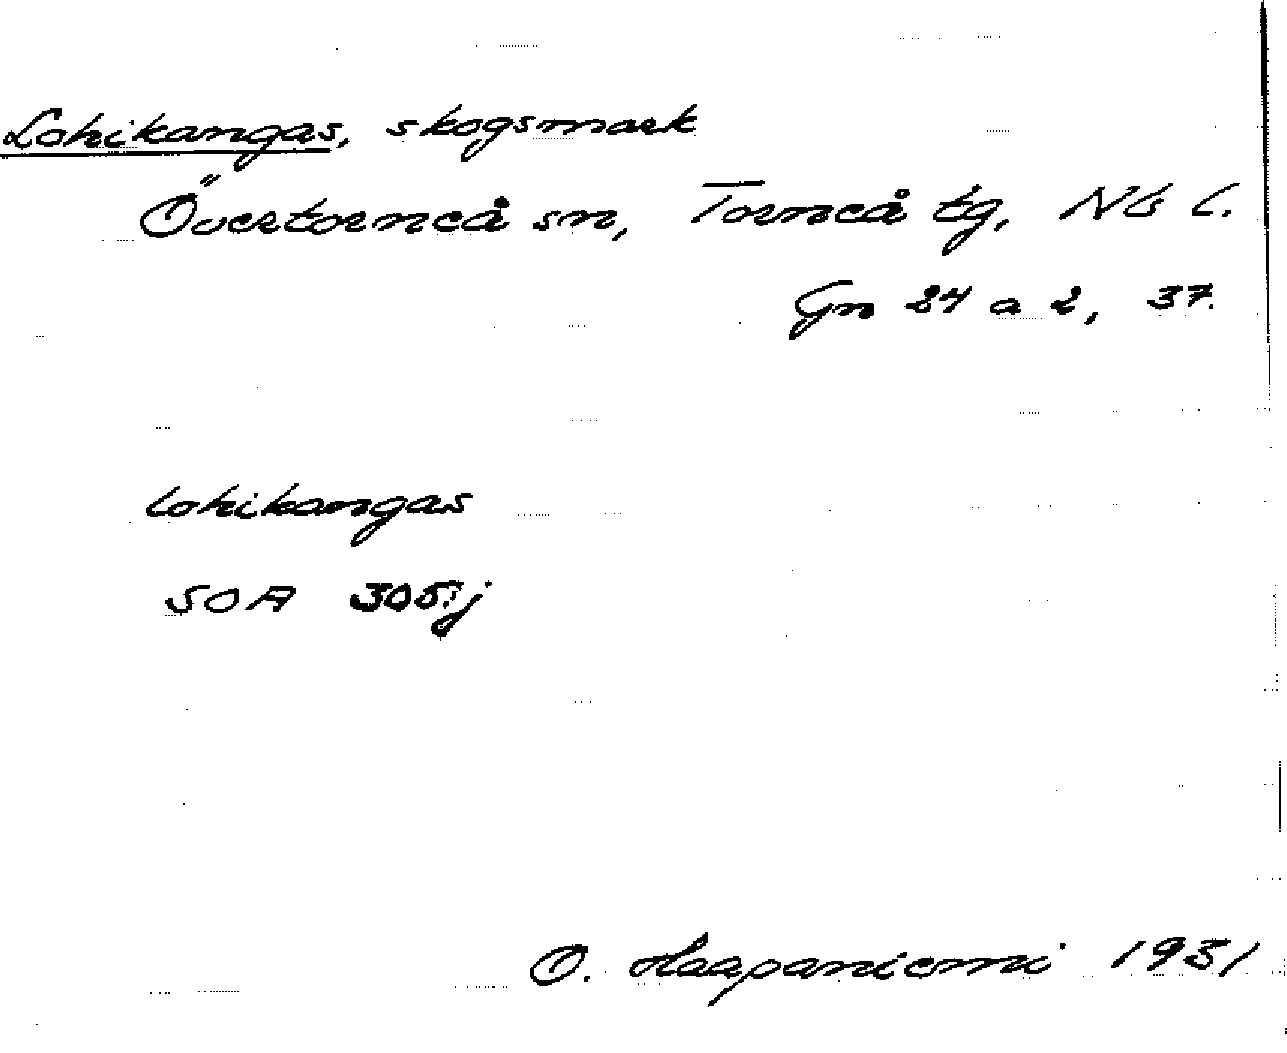 Lohikangas, skogsmark
Övertorneå sn, Torneå tg, Nb l.
Gn 24 a 2, 37.
lohikangas
SOA
O. Haapaniemi 1931